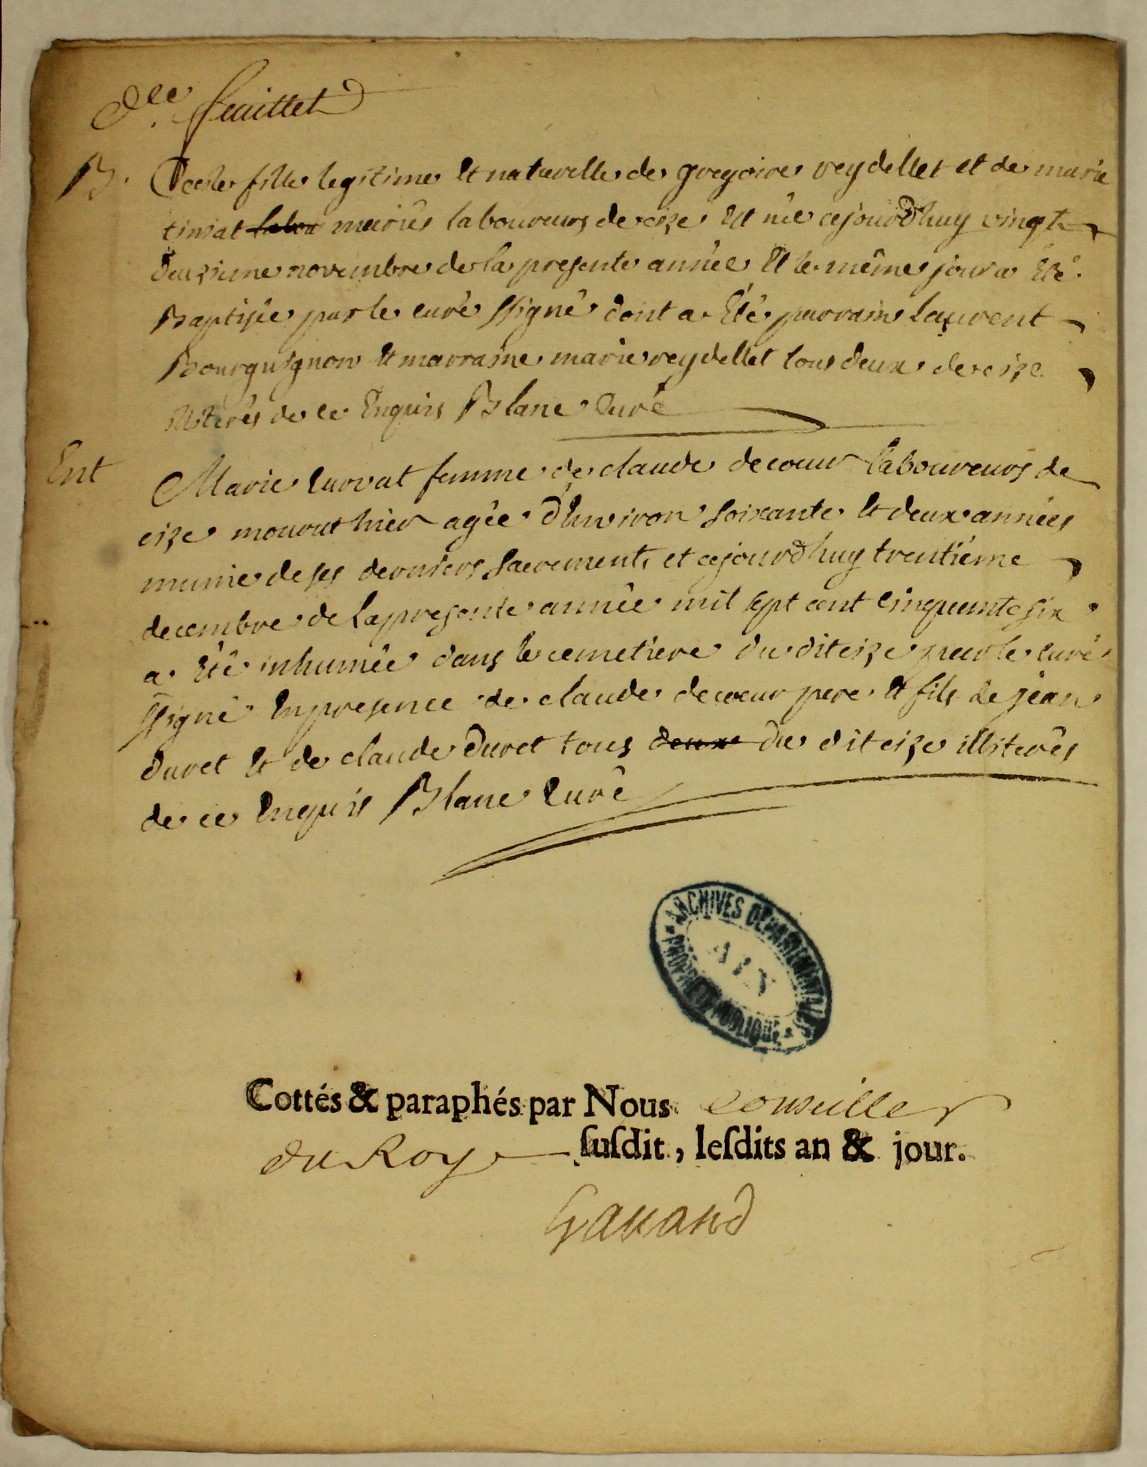 d.ee feuillet
B. fille legitime et naturelle de gregoire reydellet et de marie
timat labou mariés laboureurs de cize est née cejourdhuy vingt
deuxieme novembre de la presente année et le même jour a été
Baptisée par le curé ssigné dont a été parrain laurent
Bourguignon et marraine marie reydellet tous deux de cize
illiterés de ce enquis Blanc curé
Ent Marie curvat femme de claude decoeur laboureurs de
cize mourut hier agée d'environ soixante et deux années
munie de ses derniers sacrements et cejourdhuy trentiéme
decembre de la presente année mil sept cent cinquante six
a été inhumée dans le cemetiere du dit cize par le curé
ssigné en presence de claude decoeur pere et fils de jean
duret et de claude duret tous deux du dit cize illiterés
de ce enquis Blanc curé
ARCHIVES DEPARTEMENTALES
AIN
PROPRIETE PUBLIQUE
Cottés & paraphés par Nous conseiller
du Roy susdit, lesdits an & jour.
Gauand